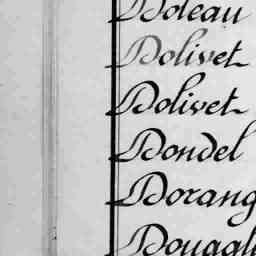 Doleau
Dolivet
Dolivet
Dondel
Dorang
Douagl